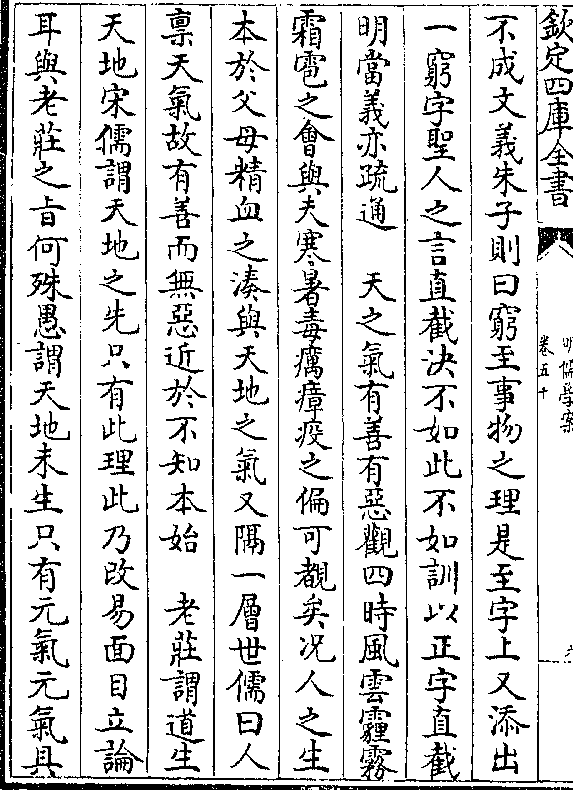 欽定四庫全書
明儒學案
卷五十
不成文義朱子則曰窮至事物之理是至字上又添出
一窮字聖人之言直截決不如此不如訓以正字直截
明當義亦疏通　天之氣有善有惡觀四時風雲霾霧
霜雹之會與夫寒暑毒厲瘴疫之偏可覩矣況人之生
本於父母精血之湊與天地之氣又隔一層世儒曰人
禀天氣故有善而無惡近於不知本始　老莊謂道生
天地宋儒謂天地之先只有此理此乃改易面目立論
耳與老莊之旨何殊愚謂天地未生只有元氣元氣具